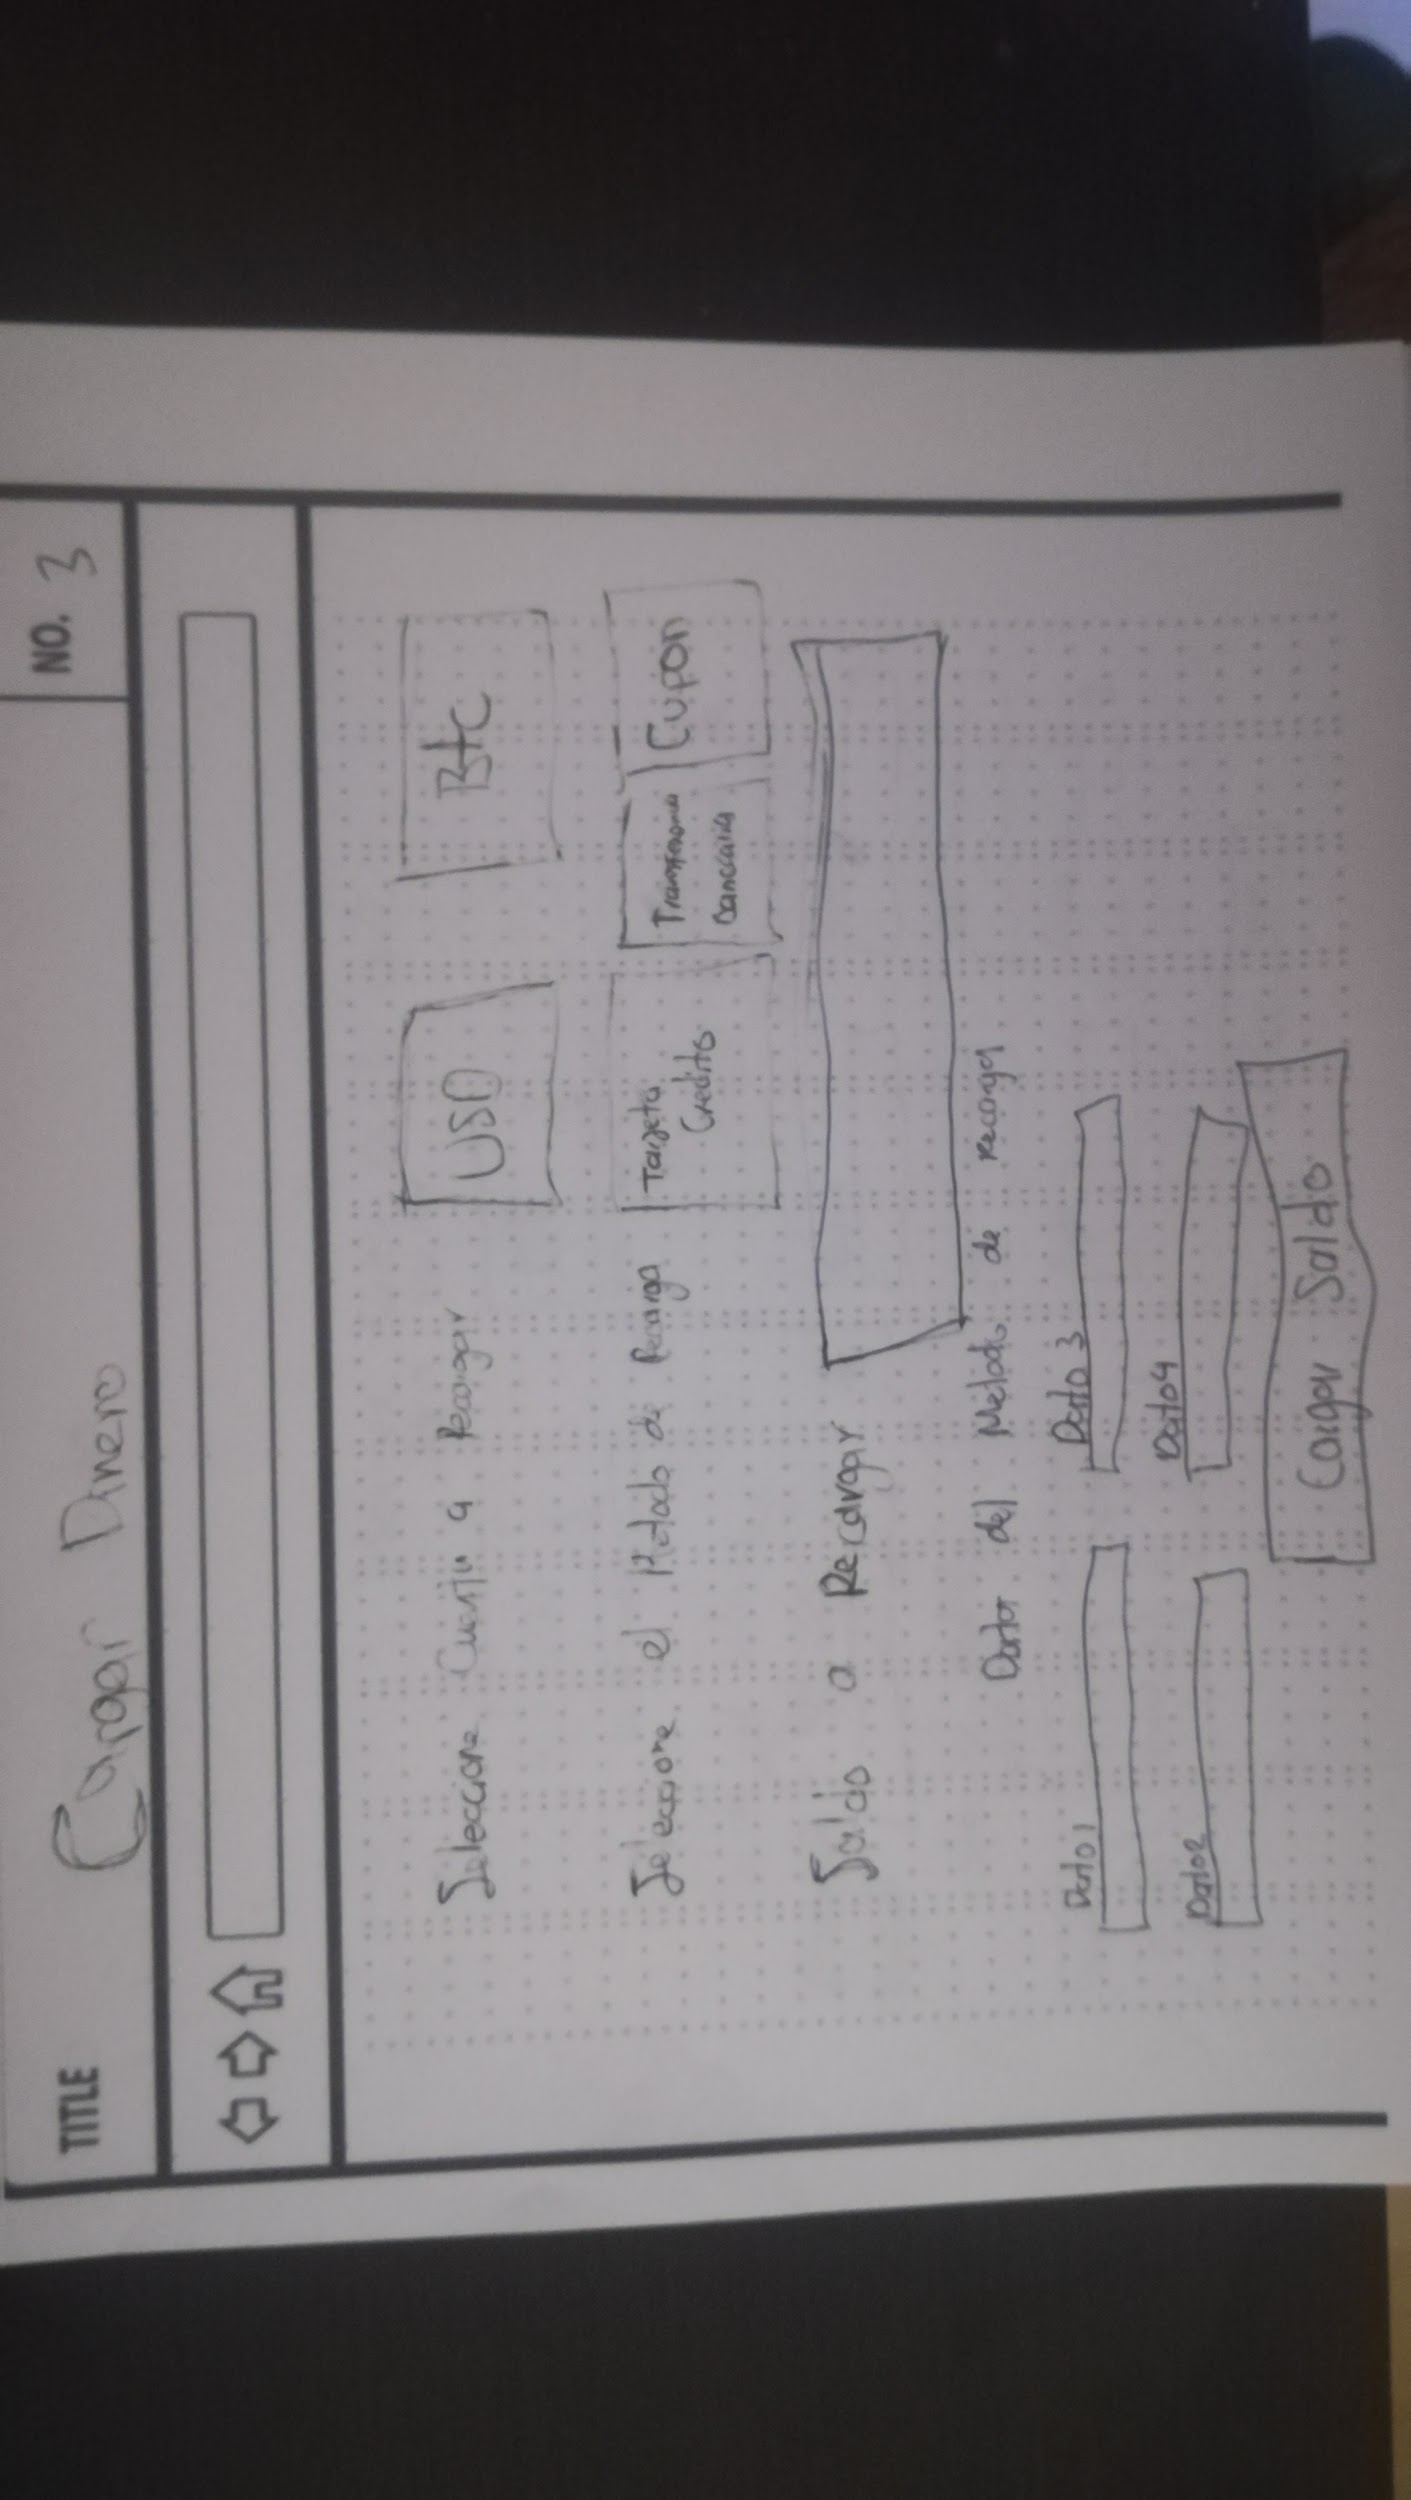 TITLE Cargar Dinero NO. 3
Seleccione Cuenta a Recargar USD Btc
Seleccione el Metodo de Recarga Tarjeta Credito Transferencia bancaria Cupon
Saldo a Recargar
Datos del Metodo de recarga
Dato1 Dato3
Dato2 Dato4
Cargar Saldo